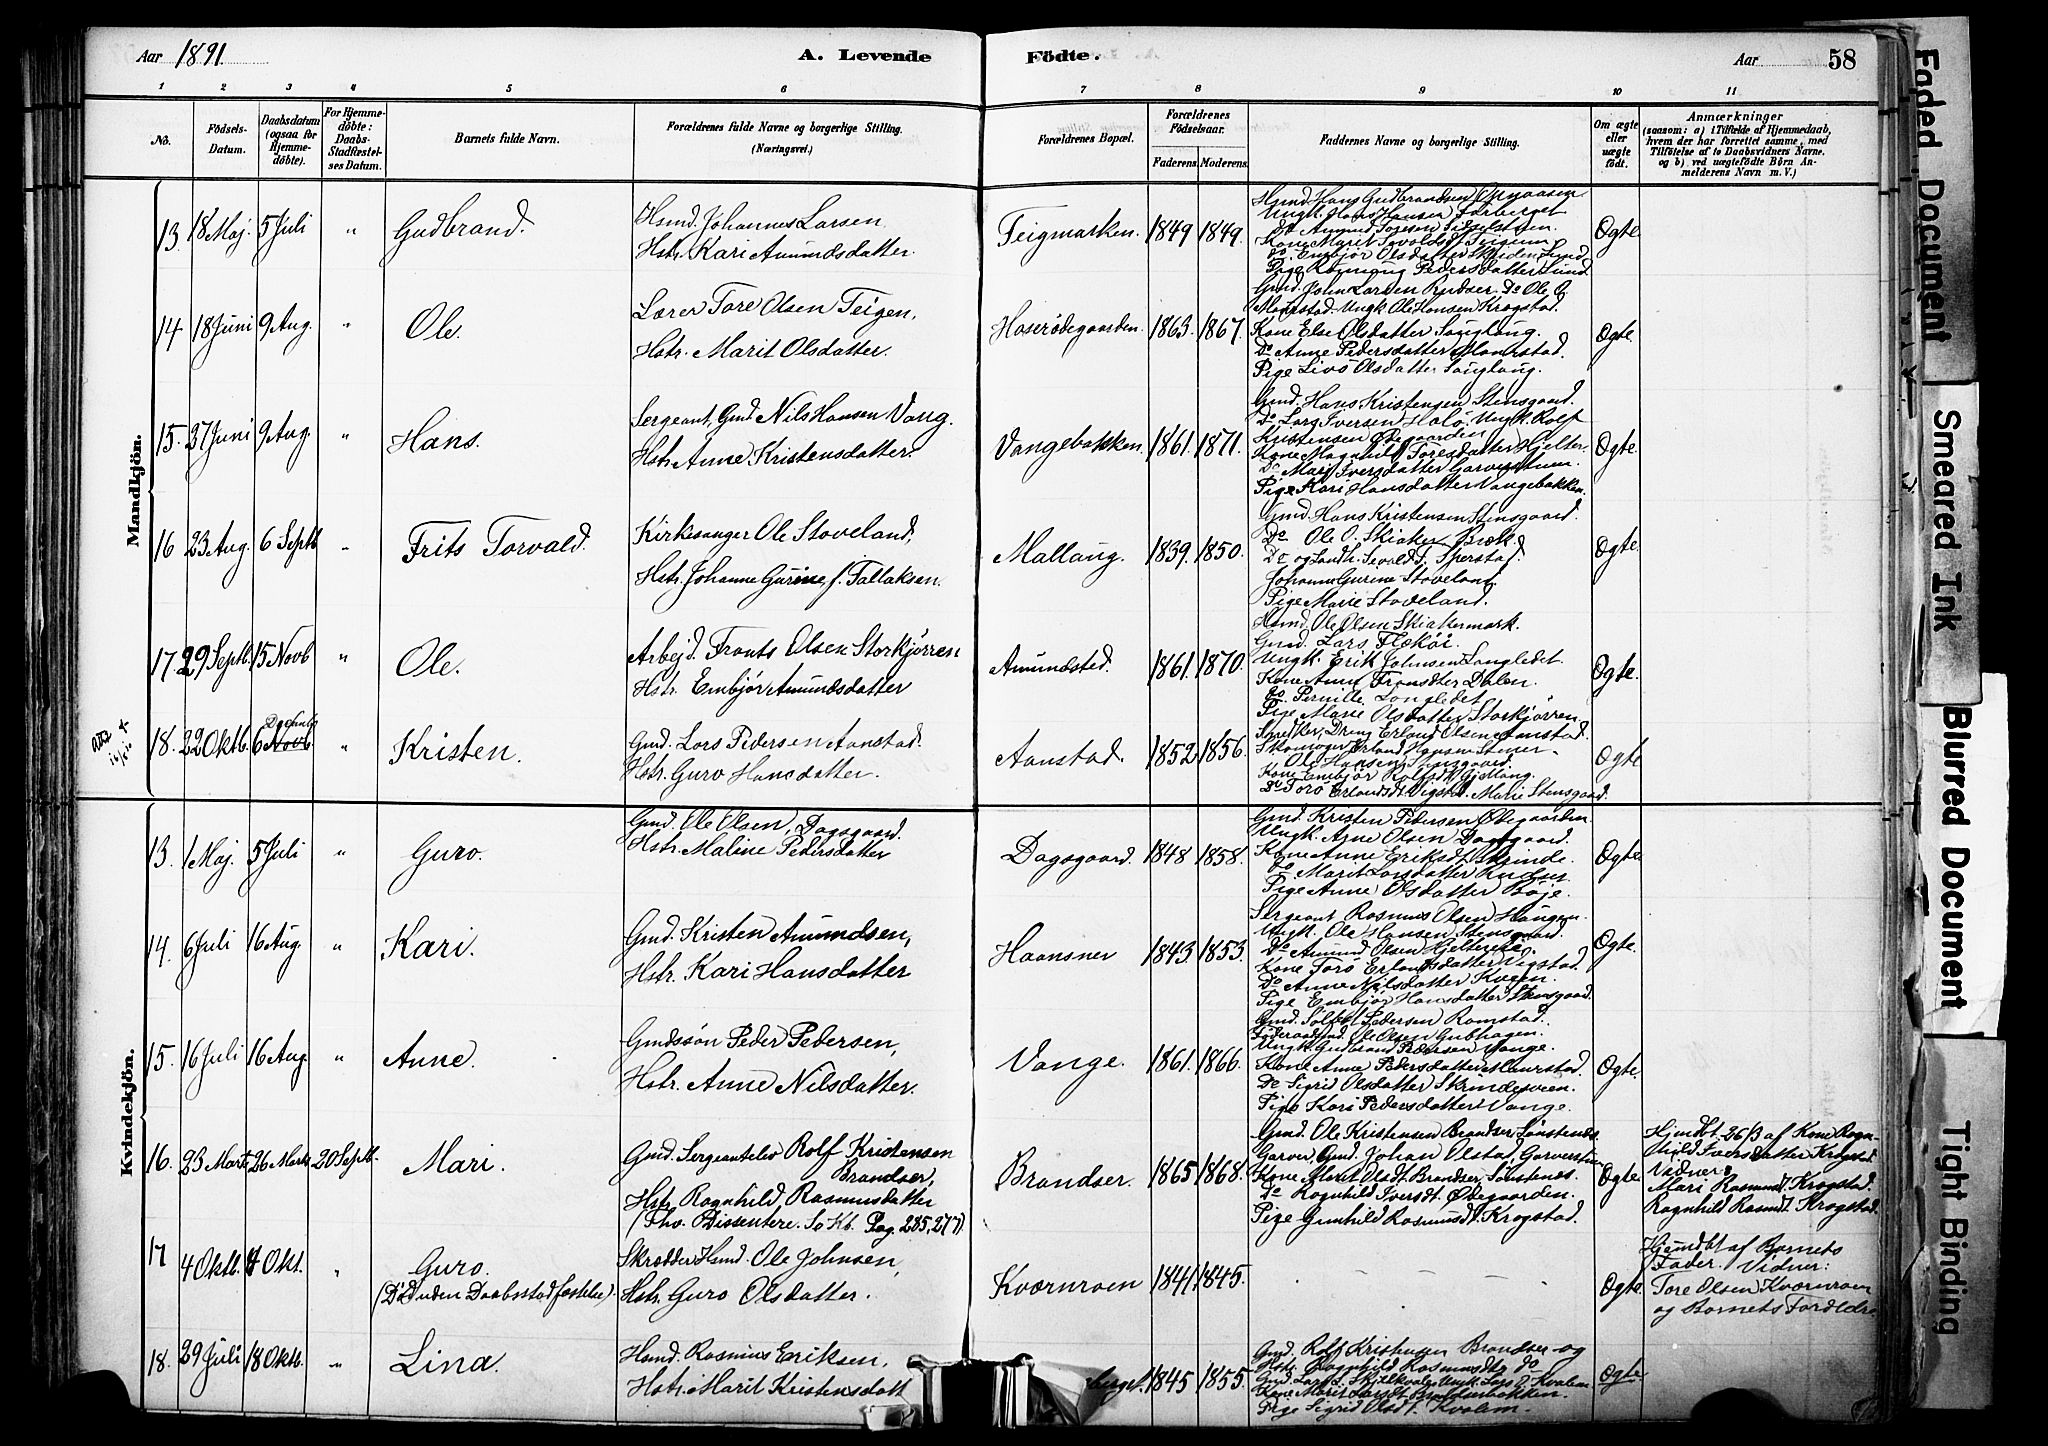 Aar 1891. A. Levende Födte. Aar 58
1 2 3 4 5 6 7 8 9 10 11
No. Födsels-Datum. Daabsdatum (ogsaa for Hjemmedöbte). For Hjemmedöbte: Daabs-Stadfæstelses Datum. Barnets fulde Navn. Forældrenes fulde Navne og borgerlige Stilling. (Næringsvei.) Forældrenes Bopæl. Forældrenes Födselsaar. Faderens. Moderens. Faddernes Navne og borgerlige Stilling. Om ægte eller uægte födt. Anmærkninger (saasom: a) i Tilfælde af Hjemmedaab, hvem der har forrettet samme, med Tilföielse af to Daabsvidners Navne, og b) ved uægtefödte Börn Anmelderens Navn m. V.)
Mandkjön.
13. 18 Maj. 5 Juli " Gudbrand. Hsmd. Johannes Larsen, Hstr. Kari Amundsdatter. Teigmarken. 1849 1849. Ægte
Hsmd. Hans Gudbrandsen
Ungk. Hans Hansen
Pige Rønnaug Pedersdatter Lund.
14 18 Juni 9 Aug. " Ole. Lærer Tore Olsen Teigen, Hstr. Marit Olsdatter. 1863. 1867. Ægte
Gmd. John Larsen Rudser. Do Ole O.
Maurstad. Ungk Ole Hansen Krogstad.
Kone Else Olsdatter Sauglang.
Do Anne Pedersdatter Maurstad.
Pige Livø Olsdatter Sauglang.
15. 27 Juni 9 Aug. " Hans. Sergeant, Gmd. Nils Hansen Vang. Hstr. Anne Kristensdatter. Vangebakken. 1861. 1871. Ægte.
Gmd. Hans Kristensen Stensgaard.
Do Lars Iversen Holø. Ungk. Rolf
Kristensen Ødegaarden
Kone Magnhild Toresdatter Hjelter.
Do Mari Iversdatter Garverstuen.
Pige Kari Hansdatter Vangebakken.
16 23 Aug. 6 Septb " Frits Torvald. Kirkesanger Ole Stoveland, Hstr. Johanne Gurine, f. Tallaksen. Mallaug. 1839. 1850. Ægte.
Gmd. Hans Kristensen Stensgaard.
Do Ole O. Skiaker Bræk.
Johanne Gurine Stoveland.
Pige Marie Stoveland.
17. 29 Septb. 15 Novb " Ole. Arbejd. Frants Olsen Storkjørren Hstr. Embjør Amundsdatter Amundsted. 1861. 1870. Ægte.
Hsmd. Ole Olsen Skiakermark.
Gmd. Lars Flekøi.
Ungk. Erik Johnsen Langledet.
Kone Anne Fransdtr Dalen.
Do Pernille Langledet
Pige Marie Olsdatter Storkjørren
18. 22 Oktb. 6 Novb Decemb " Kristen. Gmd. Lars Pedersen Aanstad. Hstr. Guro Hansdatter. Aanstad. 1852 1856. Ægte
Snedker, Dreng Erland Olsen Aanstad.
Skomager Erland Hansen Stener.
Ole Hansen Stensgaard.
Kone Embjør Rolfsdt. Gjeilang.
Do Torø Erlandsdt. Vigstad. Marie Stensgaard.
Kvindekjön.
13. 1 Maj. 5 Juli " Guro. Gmd. Ole Olsen, Dagsgaard. Hstr. Maline Pedersdatter Dagsgaard. 1848 1858. Ægte
Gmd. Kristen Pedersen Ødegaarden.
Ungk. Arne Olsen Dagsgaard.
Kone Anne Eriksdt. Skrinde.
Do Marit Larsdatter Rudser.
Pige Anne Olsdatter Bøje.
14. 6 Juli 16 Aug. " Kari. Gmd. Kristen Amundsen, Hstr. Kari Hansdatter Haansner 1843. 1853. Ægte.
Sergeant Rasmus Olsen Haugen.
Ungk. Ole Hansen Stensgaard.
Do Amund Olsen
Kone Torø Erlandsdatter Vigstad.
Do Anne Nilsdatter Kveen.
Pige Embjør Hansdatter Stensgaard.
15. 16 Juli 16 Aug. " Anne. Gmdssøn Peder Pedersen, Hstr. Anne Nilsdatter. Vange. 1861. 1866. Ægte.
Gmd. Sølfest Pedersen Ramstad.
Føderaadsmd. Ole Olsen Gubhagen.
Ungk. Gudbrand Pedersen Vange.
Kone Anne Pedersdatter Maurstad.
Do Sigrid Olsdatter Skrindesveen.
Pige Kari Pedersdatter Vange.
16. 23 Marts 26 Marts 20 Septb. Mari. Gmd. Sergeantelev Rolf Kristensen Brandser, Hstr. Ragnhild Rasmusdatter (Fhv. Dissentere. Se Kb. Pag. 285, 277). Brandser. 1865 1868. Ægte
Gmd. Ole Kristensen Brandser Sønstenes.
Garver, Gmd. Johan Olstad, Garverstuen
Kone Marit Olsdt. Brandser, Sønstenes.
Do Ragnhild Iversdt. Ødegaarden.
Pige Gunhild Rasmusdt. Krogstad.
Hjemdbt. 26/3 af Kone Ragnhild Iversdatter Krogstad
Vidner:
Mari Rasmusdt. Krogstad.
Ragnhild Rasmdt. Krogstad.
17 4 Oktb. 4 Okt. " Guro. (Død uden Daabsstadfæstelse). Skrædder Hsmd. Ole Johnsen, Hstr. Guro Olsdatter. Kværnroen 1841. 1845. Ægte
Hjemdbt af Barnets
Fader. Vidner:
Tore Olsen Kværnroen
og Barnets Forældre
18. 29 Juli 18 Oktb. " Lina. Hsmd. Rasmus Eriksen, Hstr. Marit Kristensdatt 1845 1855. Ægte
Gmd. Rolf Kristensen Brandser og
Hstr. Ragnhild Rasmusdt. do
Kone Marit Larsdt.
Pige Sigrid Olsdt. Kvalem.
Faded Document
Smeared Ink
Blurred Document
Tight Binding